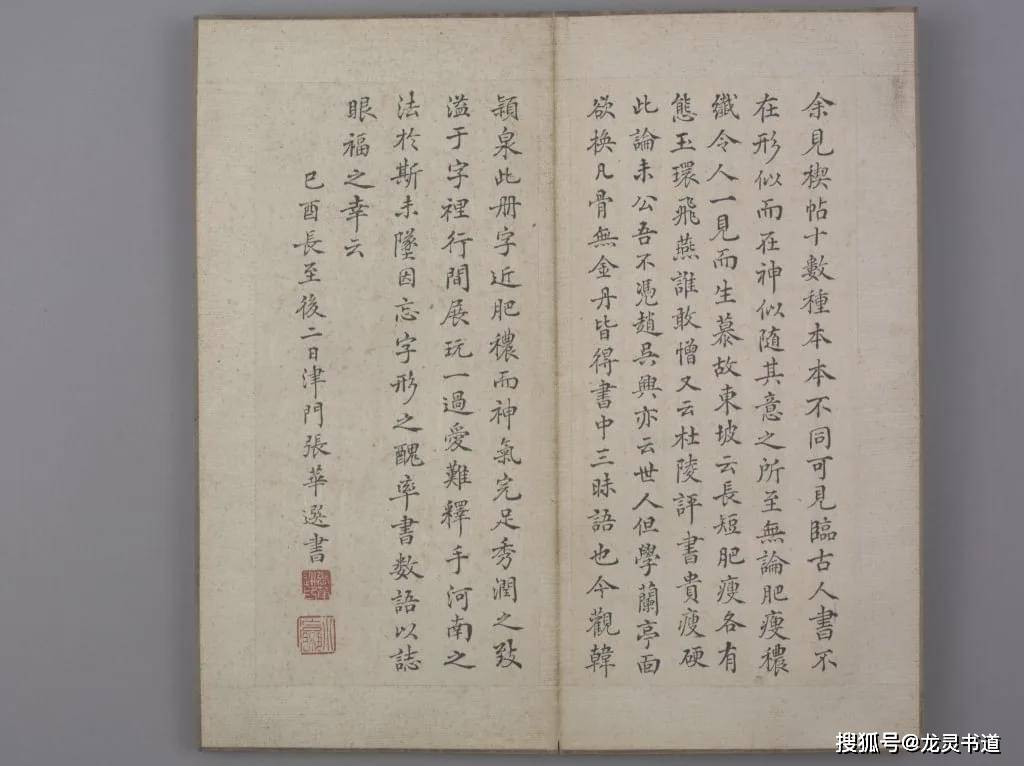 余見禊帖十數種本本不同可見臨古人書不
在形似而在神似随其意之所至無論肥瘦穠
纖令人一見而生慕故東坡云長短肥瘦各有
態玉環飛燕誰敢憎又云杜陵評書貴瘦硬
此論未公吾不憑趙吳興亦云世人但學蘭亭面
欲换凡骨無金丹皆得書中三昧語也今觀韓
潁泉此册字近肥穠而神氣完足秀潤之致
溢于字裡行間展玩一過愛難釋手河南之
法於斯未墜因忘字形之醜率書数語以誌
眼福之幸云
己酉長至後二日津門張華選書
搜狐号@龙灵书道